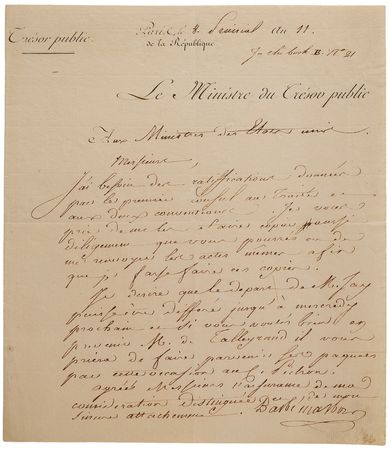 Trésor public.
Paris, le 8. Prairial An 11.
de la République
B. Nº 21
Le Ministre du Trésor public
Aux Ministres des Etats unis
Messieurs,
J'ai besoin des ratifications données
par le premier Consul au traité et
aux deux conventions. Je vous
prie de me les faire copier aussi
diligemment que vous pourrez ou de
m'envoyer les actes mêmes afin
que je fasse faire ces copies.
Je désire que le départ de M. Jay
puisse être différé jusqu'à mercredi
prochain et si vous voulez bien en
prévenir M. de Talleyrand il vous
priera de faire parvenir ses paquets
par cette occasion au C. Pichon.
Agréez Messieurs l'assurance de ma
considération distinguée et de mon
sincère attachement. Barbé Marbois